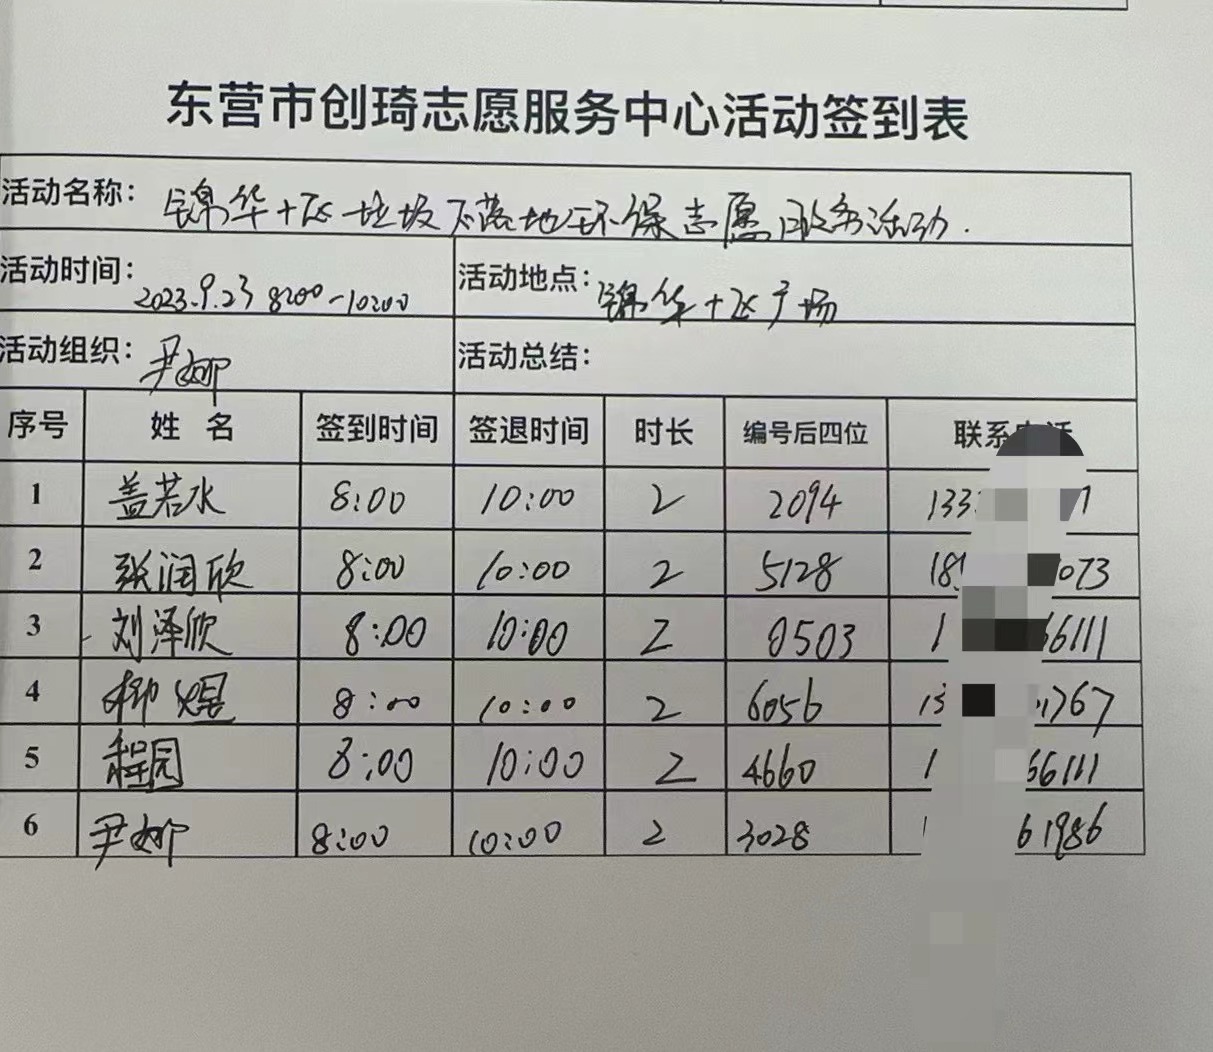 东营市创琦志愿服务中心活动签到表
活动名称： 锦华十区垃圾不落地环保志愿服务活动.
活动时间： 2023.9.23 8:00-10:00 活动地点： 锦华十区广场
活动组织： 尹娜 活动总结：
序号 姓名 签到时间 签退时间 时长 编号后四位 联系电话
1 盖若水 8:00 10:00 2 2094 133
2 张润欣 8:00 10:00 2 5128 18 073
3 刘泽欣 8:00 10:00 2 0503 1 66111
4 柳煜 8:00 10:00 2 6056 13 1767
5 程园 8:00 10:00 2 4660 1 66111
6 尹娜 8:00 10:00 2 3028 1 61986